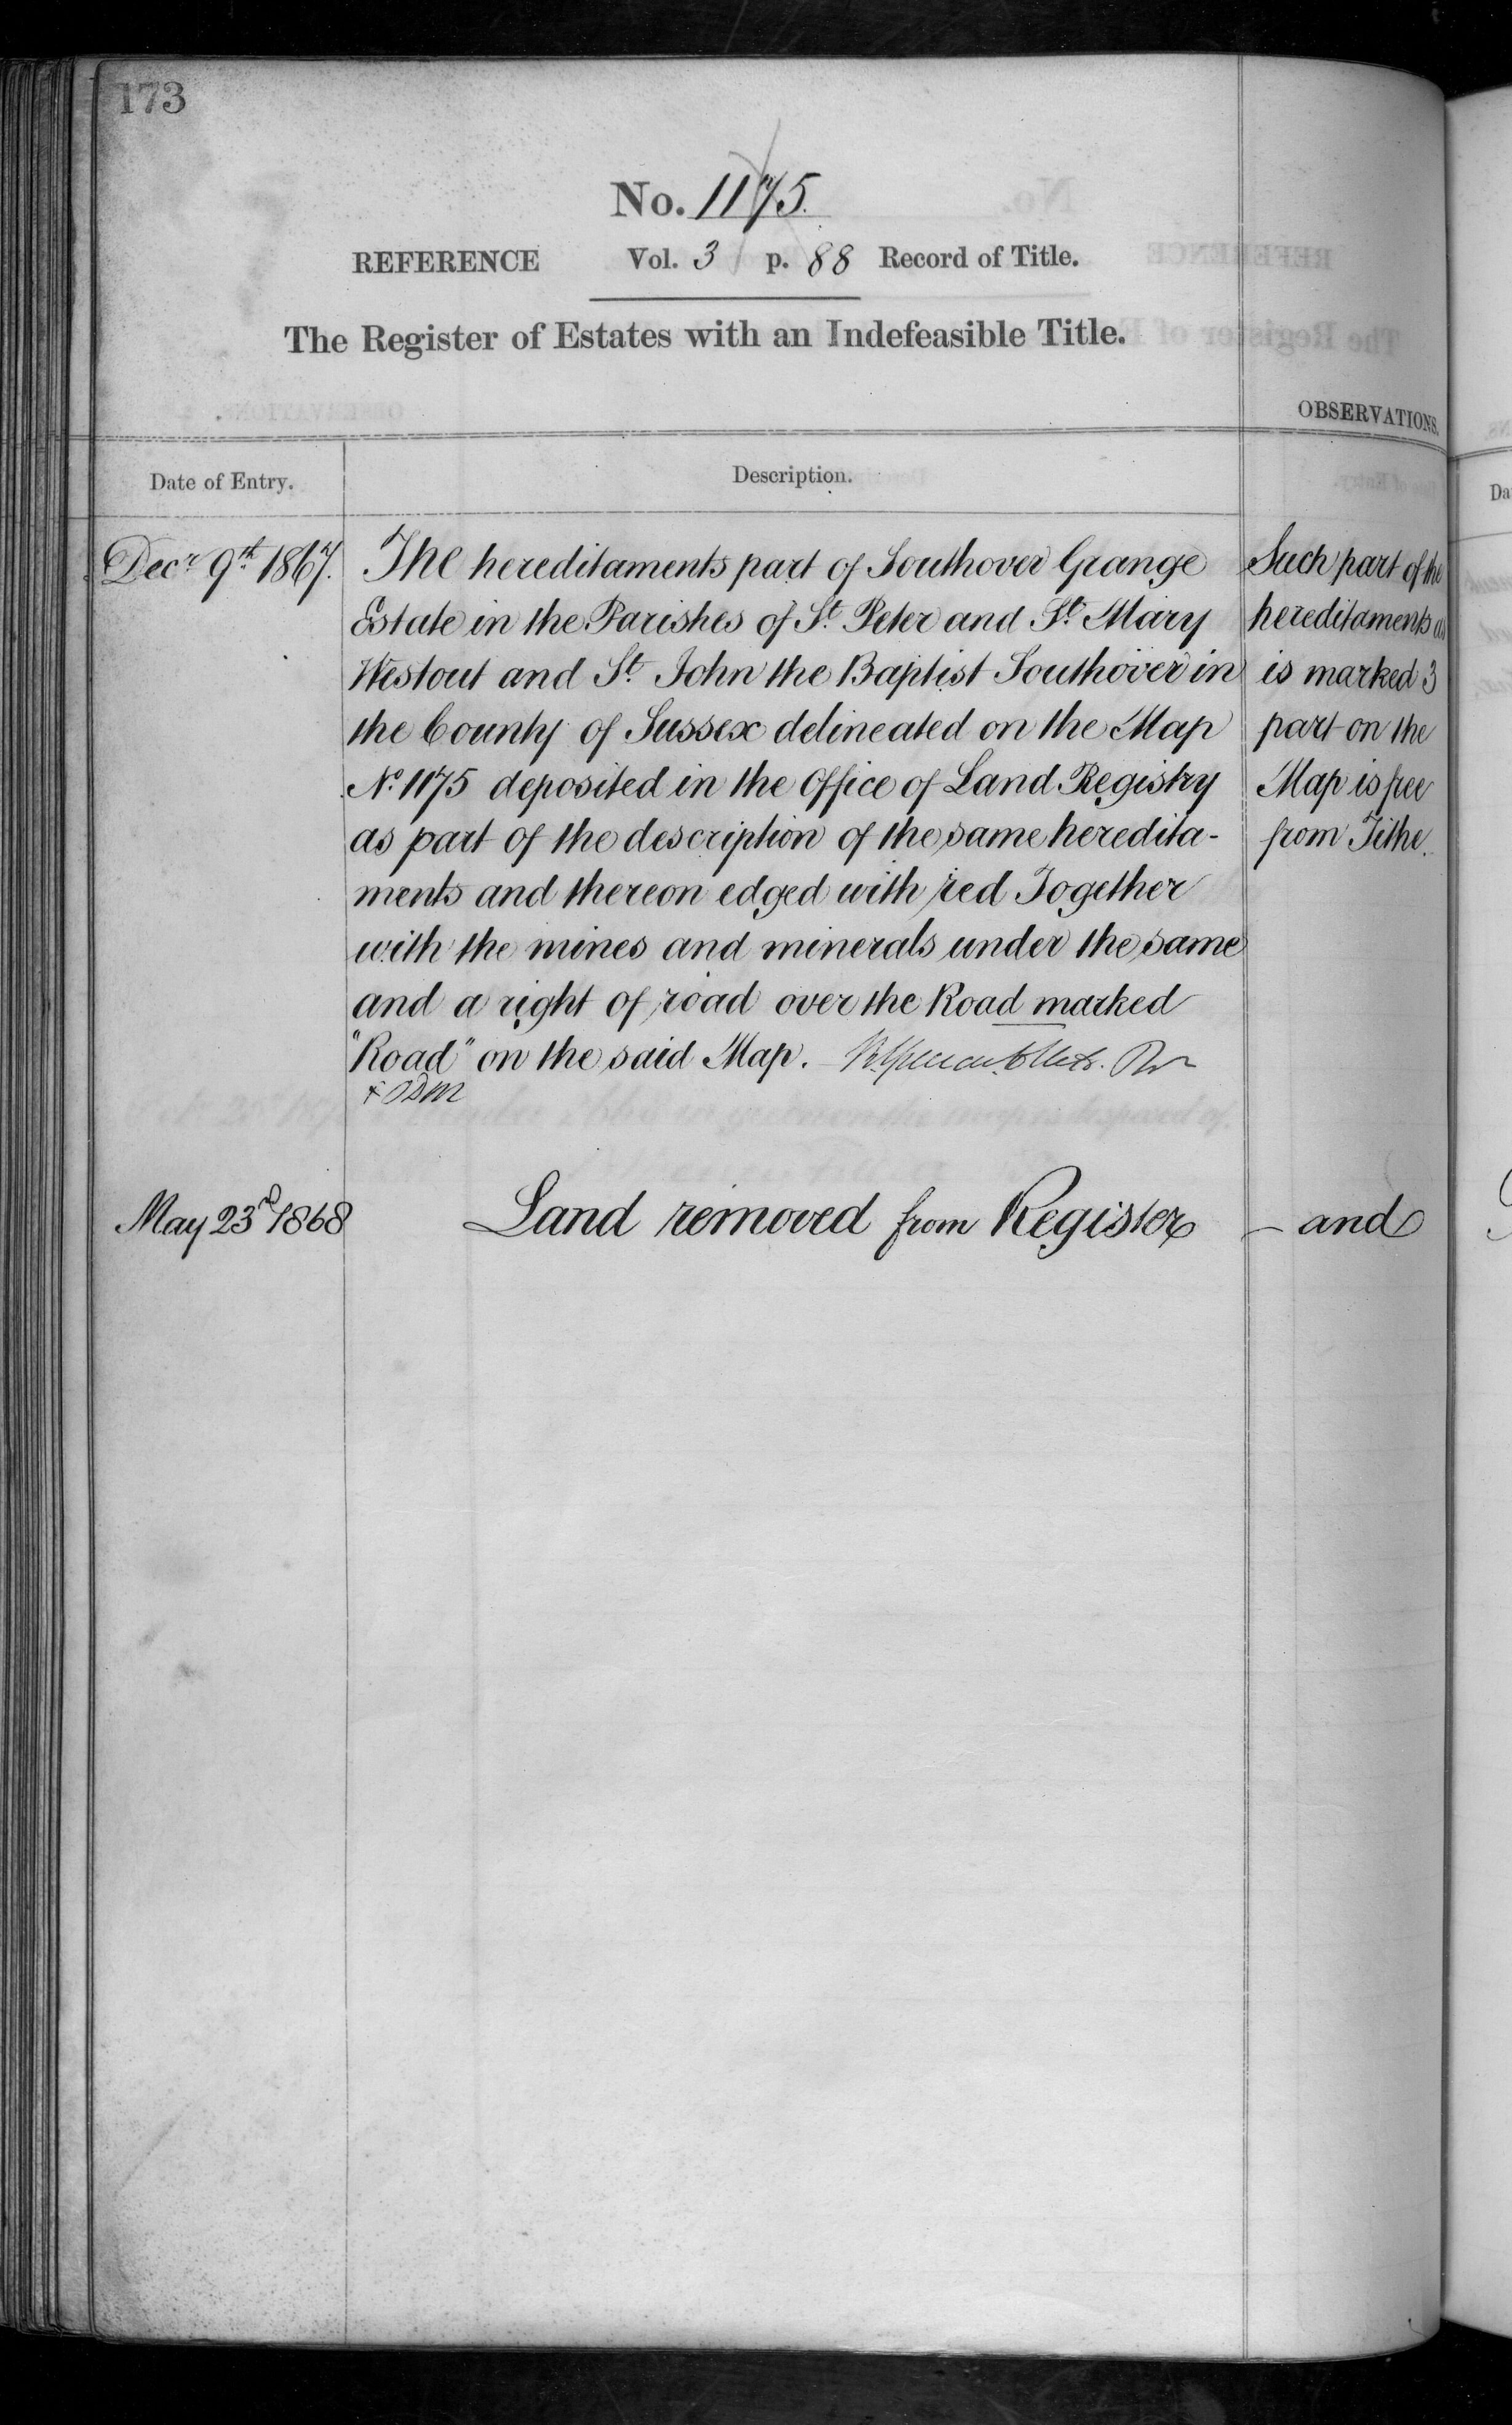 173
No. 1175.
REFERENCE Vol. 3 p. 88 Record of Title.
The Register of Estates with an Indefeasible Title.
OBSERVATIONS.
Date of Entry.
Description.
Decr 9th 1867.
The hereditaments part of Southover Grange
Estate in the Parishes of St. Peter and St. Mary
Westout and St. John the Baptist Southover in
the County of Sussex delineated on the Map
No. 1175 deposited in the Office of Land Registry
as part of the description of the same heredita-
ments and thereon edged with red Together
with the mines and minerals under the same
and a right of road over the Road marked
"Road" on the said Map.
Such part of the
hereditaments as
is marked 3
part on the
Map is free
from Tithe.
May 23rd 1868
Land removed from Register
- and
Da